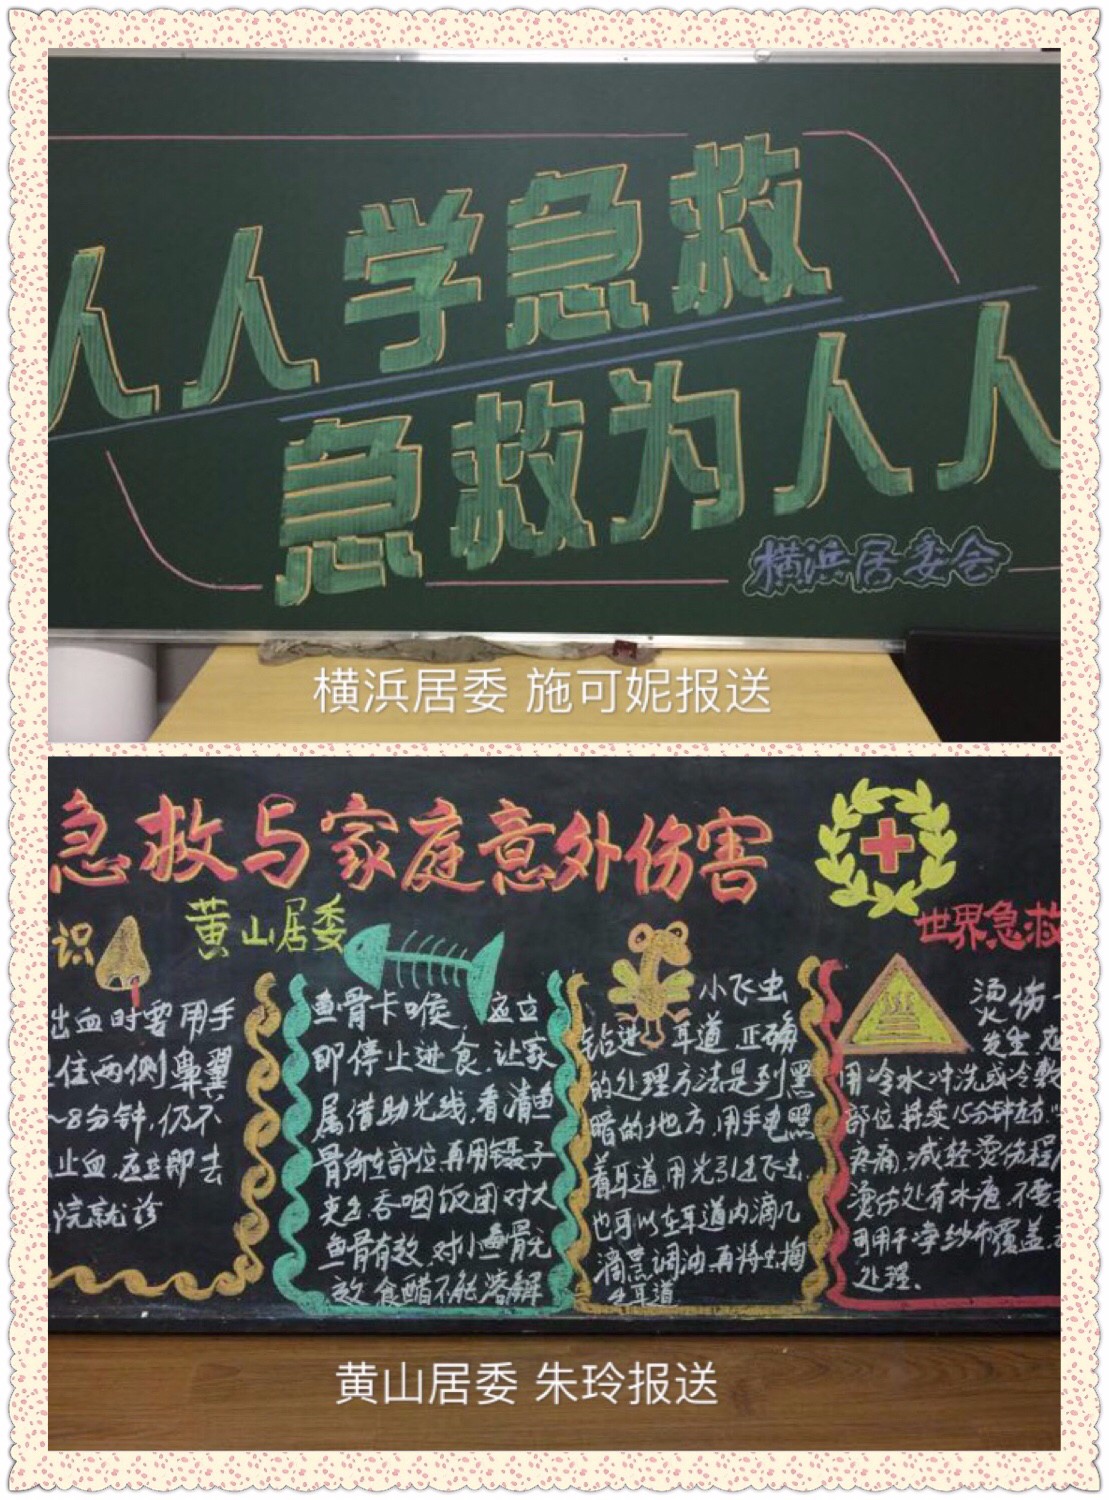 人人学急救
急救为人人
横浜居委会
横浜居委 施可妮报送
急救与家庭意外伤害
黄山居委
识
世界急救
出血时要用手
住两侧鼻翼
~8分钟,仍不
止血,应立即去
院就诊
鱼骨卡喉,应立
即停止进食,让家
属借助光线,看清鱼
骨所在部位,再用镊子
夹出,吞咽饭团对大
鱼骨有效,对小鱼骨无
效,食醋不能溶解
小飞虫
钻进耳道,正确
的处理方法是到黑
暗的地方,用手电照
着耳道,用光引出飞虫,
也可以在耳道内滴几
滴烹调油,再将虫掏
出耳道
烫伤一
发生,应
用冷水冲洗或冷敷
部位,持续15分钟左右,以
疼痛,减轻烫伤程度
烫伤处有水疱,不要
可用干净纱布覆盖,
处理。
黄山居委 朱玲报送